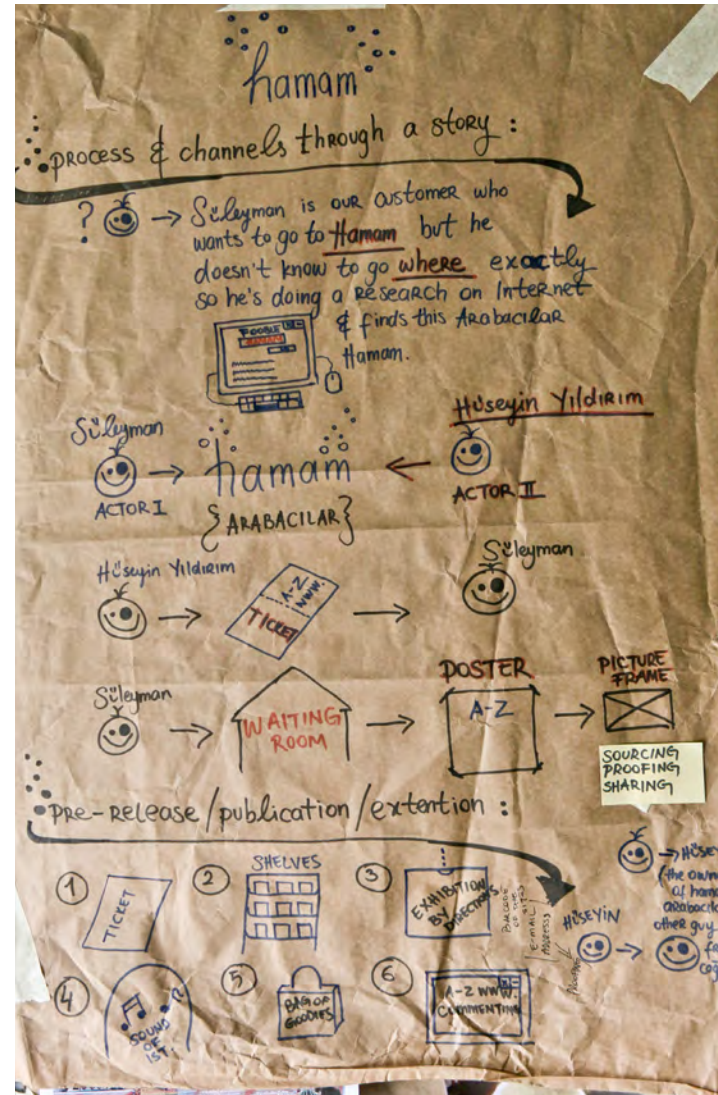 hamam
process & channels through a story :
? → Süleyman is our customer who
wants to go to Hamam but he
doesn't know to go where exactly
so he's doing a research on Internet
& finds this Arabacılar
Hamam.
Süleyman
ACTOR I
→
hamam
{ARABACILAR}
←
Hüseyin Yıldırım
ACTOR II
Hüseyin Yıldırım
→
A-Z
www.
TICKET
→
Süleyman
Süleyman
→
WAITING
ROOM
→
POSTER
A-Z
→
PICTURE
FRAME
SOURCING
PROOFING
SHARING
pre-release/publication/extention :
1
TICKET
2
SHELVES
3
EXHIBITION
BY
DIRECTIONS
BARCODE
OF
SITES
E-MAIL
ADDRESS
→ HÜSEY
(the own
of hama
arabacıl
other guy
HÜSEYİN
→
4
SOUND
OF
IST.
5
BAG OF
GOODIES
6
A-Z WWW.
COMMENTING